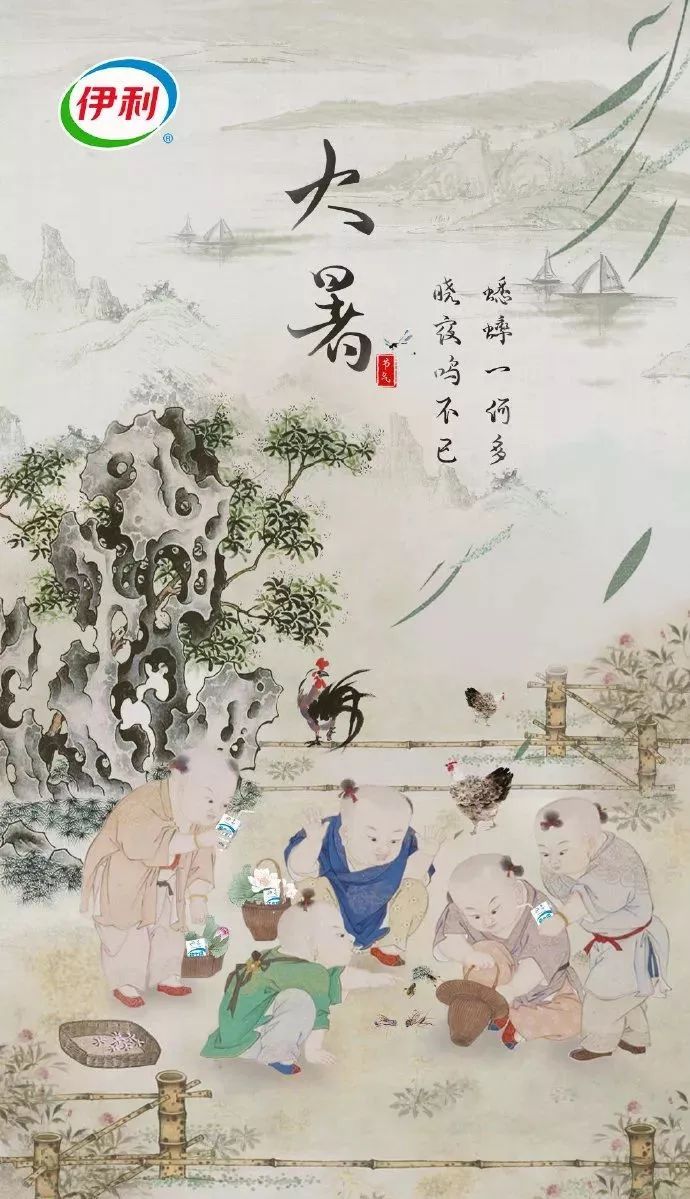 伊利
®
大
暑
节气
蟋蟀一何多
晓夜鸣不已